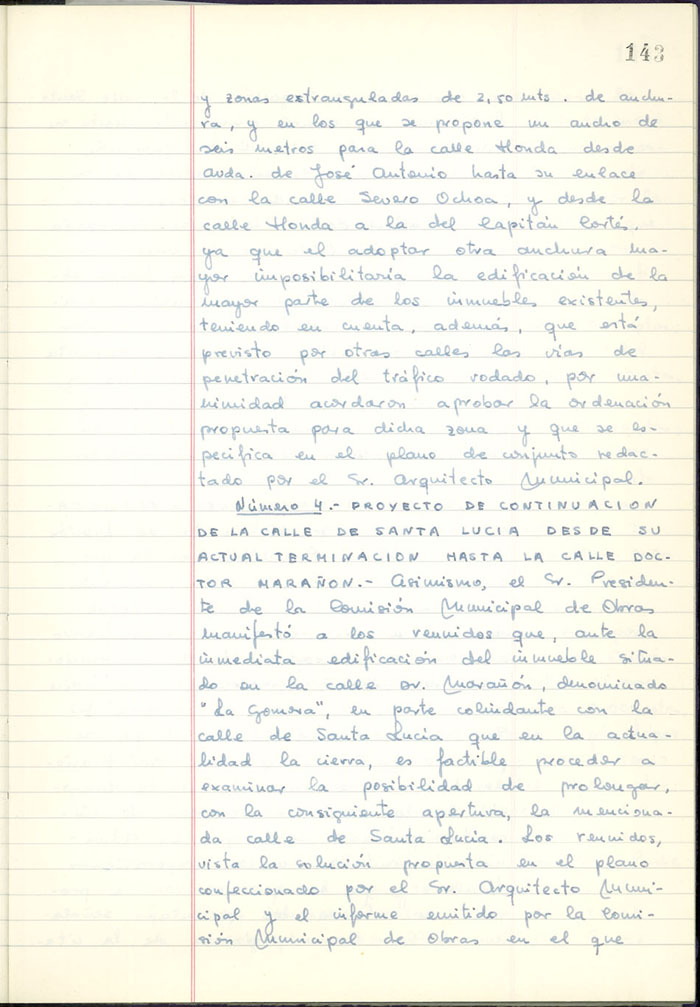 143
y zonas estranguladas de 2,50 mts. de anchu-
ra, y en los que se propone un ancho de
seis metros para la calle Honda desde
avda. de José Antonio hasta su enlace
con la calle Severo Ochoa, y desde la
calle Honda a la del Capitán Cortés,
ya que el adoptar otra anchura ma-
yor imposibilitaría la edificación de la
mayor parte de los inmuebles existentes,
teniendo en cuenta, además, que está
previsto por otras calles las vías de
penetración del tráfico rodado, por una-
nimidad acordaron aprobar la ordenación
propuesta para dicha zona y que se es-
pecifica en el plano de conjunto redac-
tado por el Sr. Arquitecto Municipal.
Número 4.- PROYECTO DE CONTINUACION
DE LA CALLE DE SANTA LUCIA DESDE SU
ACTUAL TERMINACION HASTA LA CALLE DOC-
TOR MARAÑON.- Asimismo, el Sr. Presiden-
te de la Comisión Municipal de Obras
manifestó a los reunidos que, ante la
inmediata edificación del inmueble situa-
do en la calle Dr. Marañón, denominado
"La Gomera", en parte colindante con la
calle de Santa Lucía que en la actua-
lidad la cierra, es factible proceder a
examinar la posibilidad de prolongar,
con la consiguiente apertura, la menciona-
da calle de Santa Lucía. Los reunidos,
vista la solución propuesta en el plano
confeccionado por el Sr. Arquitecto Muni-
cipal y el informe emitido por la Comi-
sión Municipal de Obras en el que